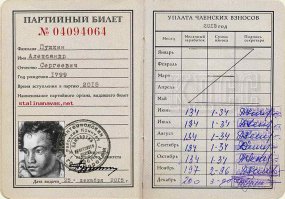 ПАРТИЙНЫЙ БИЛЕТ
№ 04094064
Фамилия Пушкин
Имя Александр
Отчество Сергеевич
Год рождения 1799
Время вступления в партию 2015
Наименование партийного органа, выдавшего билет
stalinanavas.net
Дата выдачи 25 декабря 2015 г.
УПЛАТА ЧЛЕНСКИХ ВЗНОСОВ
2015 год
Месяц
Месячный заработок
Сумма взноса
Подпись секретаря
Январь
Февраль
Март
Апрель
Май
Июнь 134 1-34
Июль 134 1-34
Август 134 1-34
Сентябрь 134 1-34
Октябрь 134 1-34
Ноябрь 197 2-96
Декабрь 200 3-00